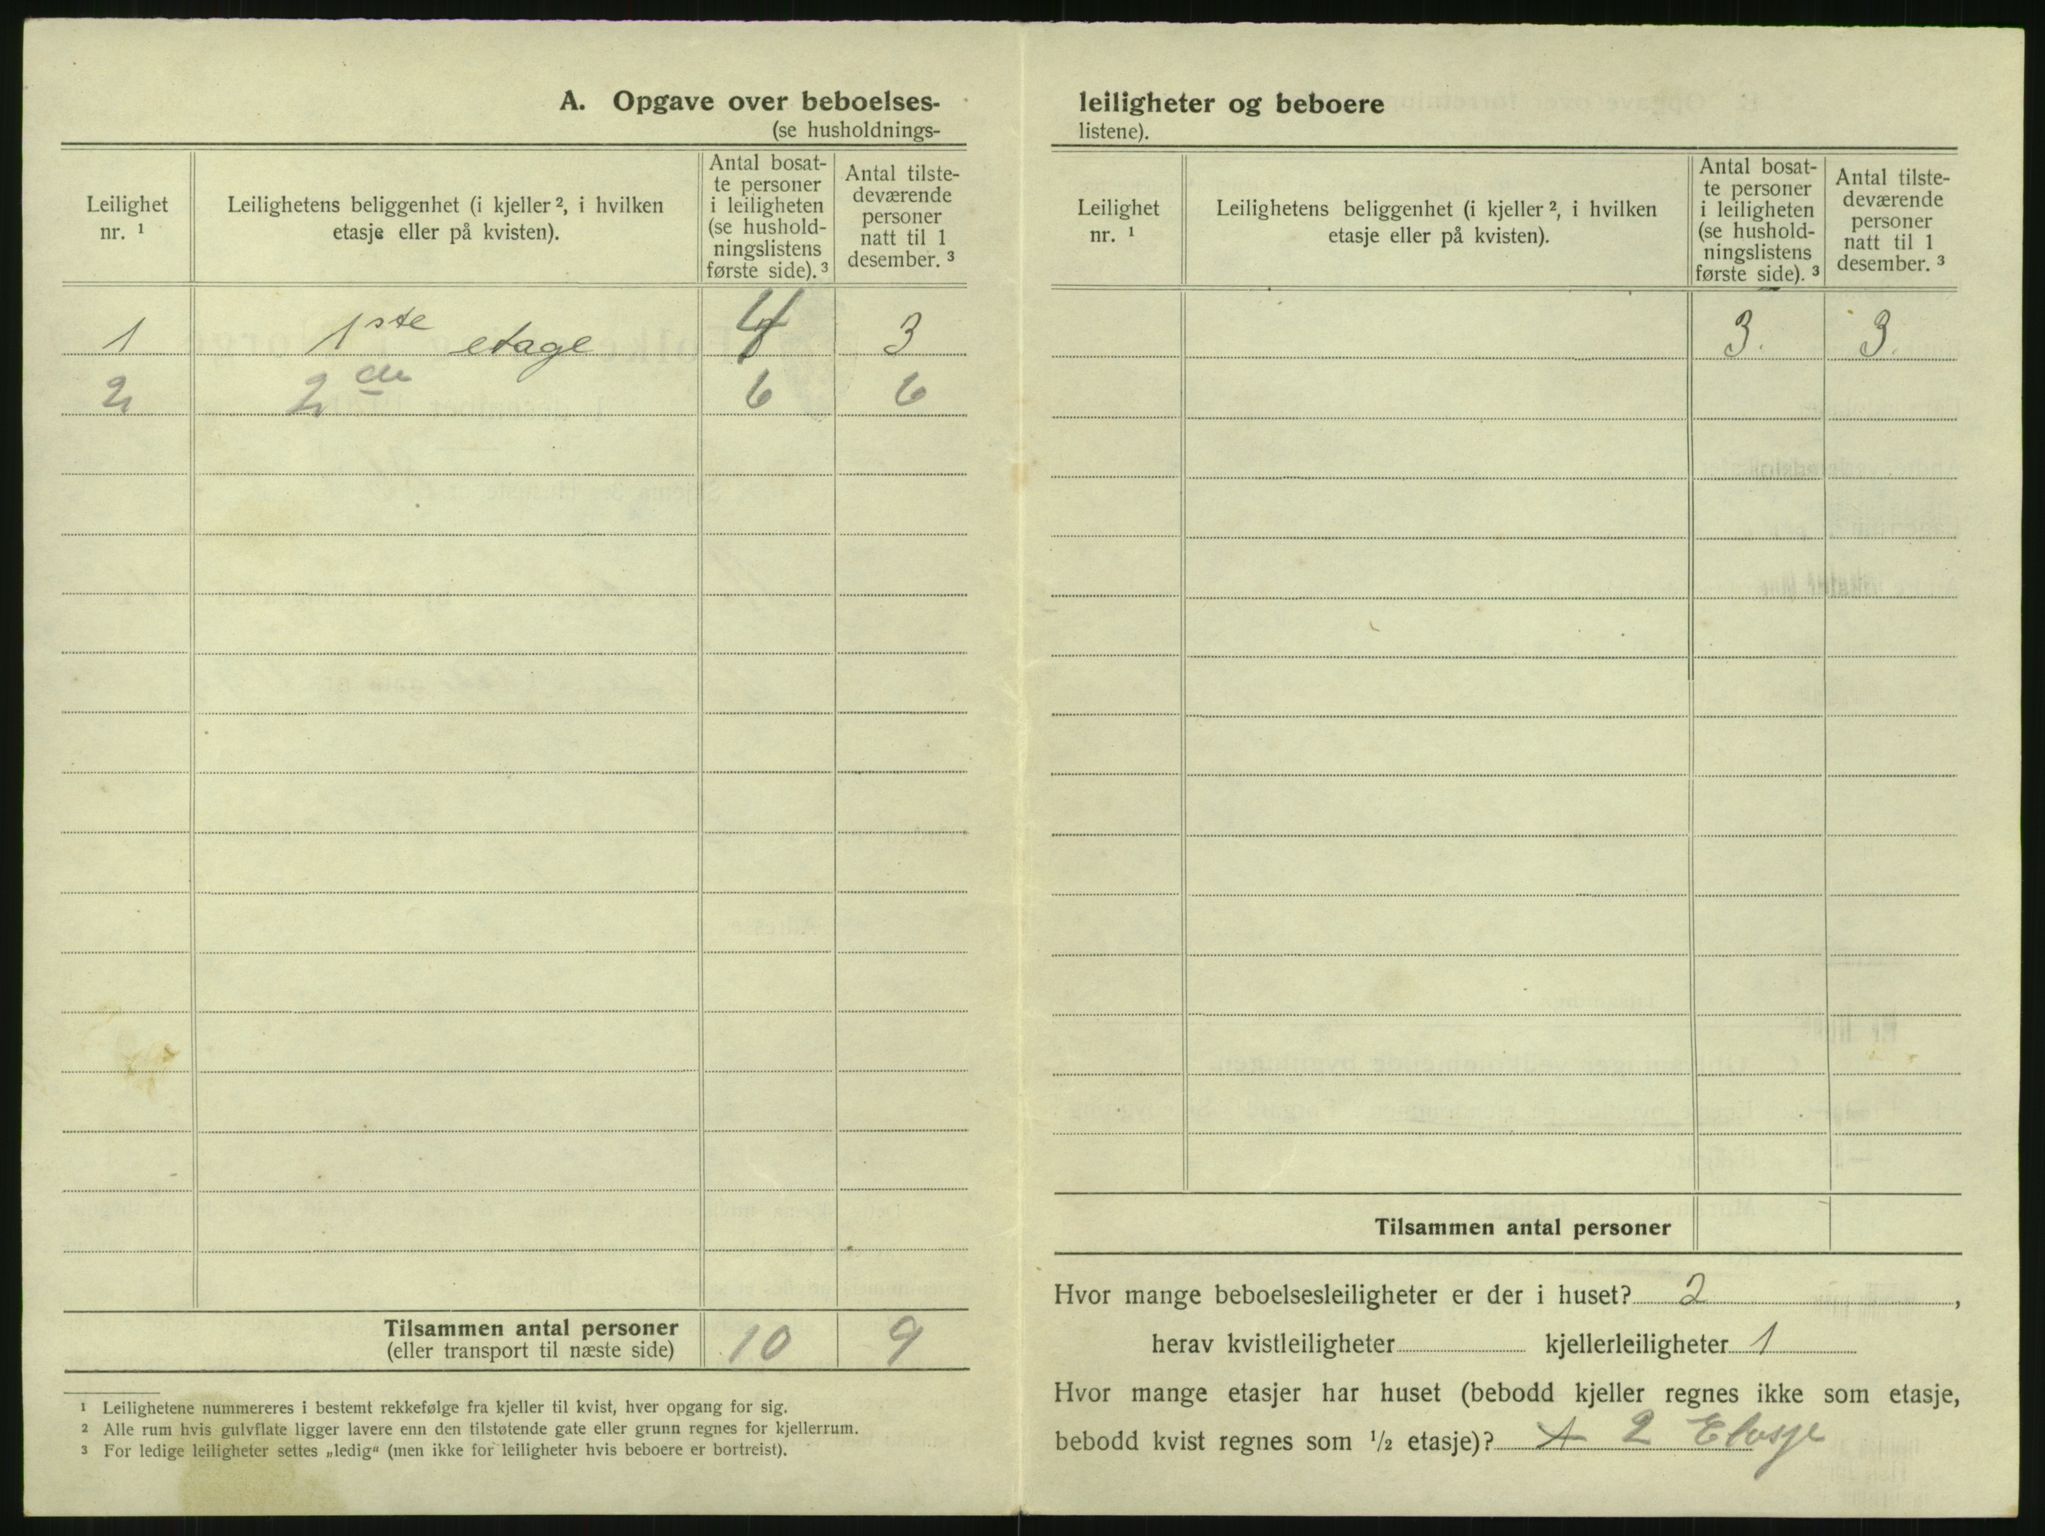 A. Opgave over beboelses-
(se husholdnings-
Leilighet nr. ¹
Leilighetens beliggenhet (i kjeller ², i hvilken etasje eller på kvisten).
Antal bosat-
te personer
i leiligheten
(se hushold-
ningslistens
første side). ³
Antal tilste-
deværende
personer
natt til 1
desember. ³
1 1ste etage 4 3
2 2de 6 6
Tilsammen antal personer 10 9
(eller transport til næste side)
¹ Leilighetene nummereres i bestemt rekkefølge fra kjeller til kvist, hver opgang for sig.
² Alle rum hvis gulvflate ligger lavere enn den tilstøtende gate eller grunn regnes for kjellerrum.
³ For ledige leiligheter settes „ledig“ (men ikke for leiligheter hvis beboere er bortreist).
leiligheter og beboere
listene).
Leilighet nr. ¹
Leilighetens beliggenhet (i kjeller ², i hvilken etasje eller på kvisten).
Antal bosat-
te personer
i leiligheten
(se hushold-
ningslistens
første side). ³
Antal tilste-
deværende
personer
natt til 1
desember. ³
3. 3.
Tilsammen antal personer
Hvor mange beboelsesleiligheter er der i huset? 2,
herav kvistleiligheter kjellerleiligheter 1
Hvor mange etasjer har huset (bebodd kjeller regnes ikke som etasje,
bebodd kvist regnes som ½ etasje)? 2 Etasje